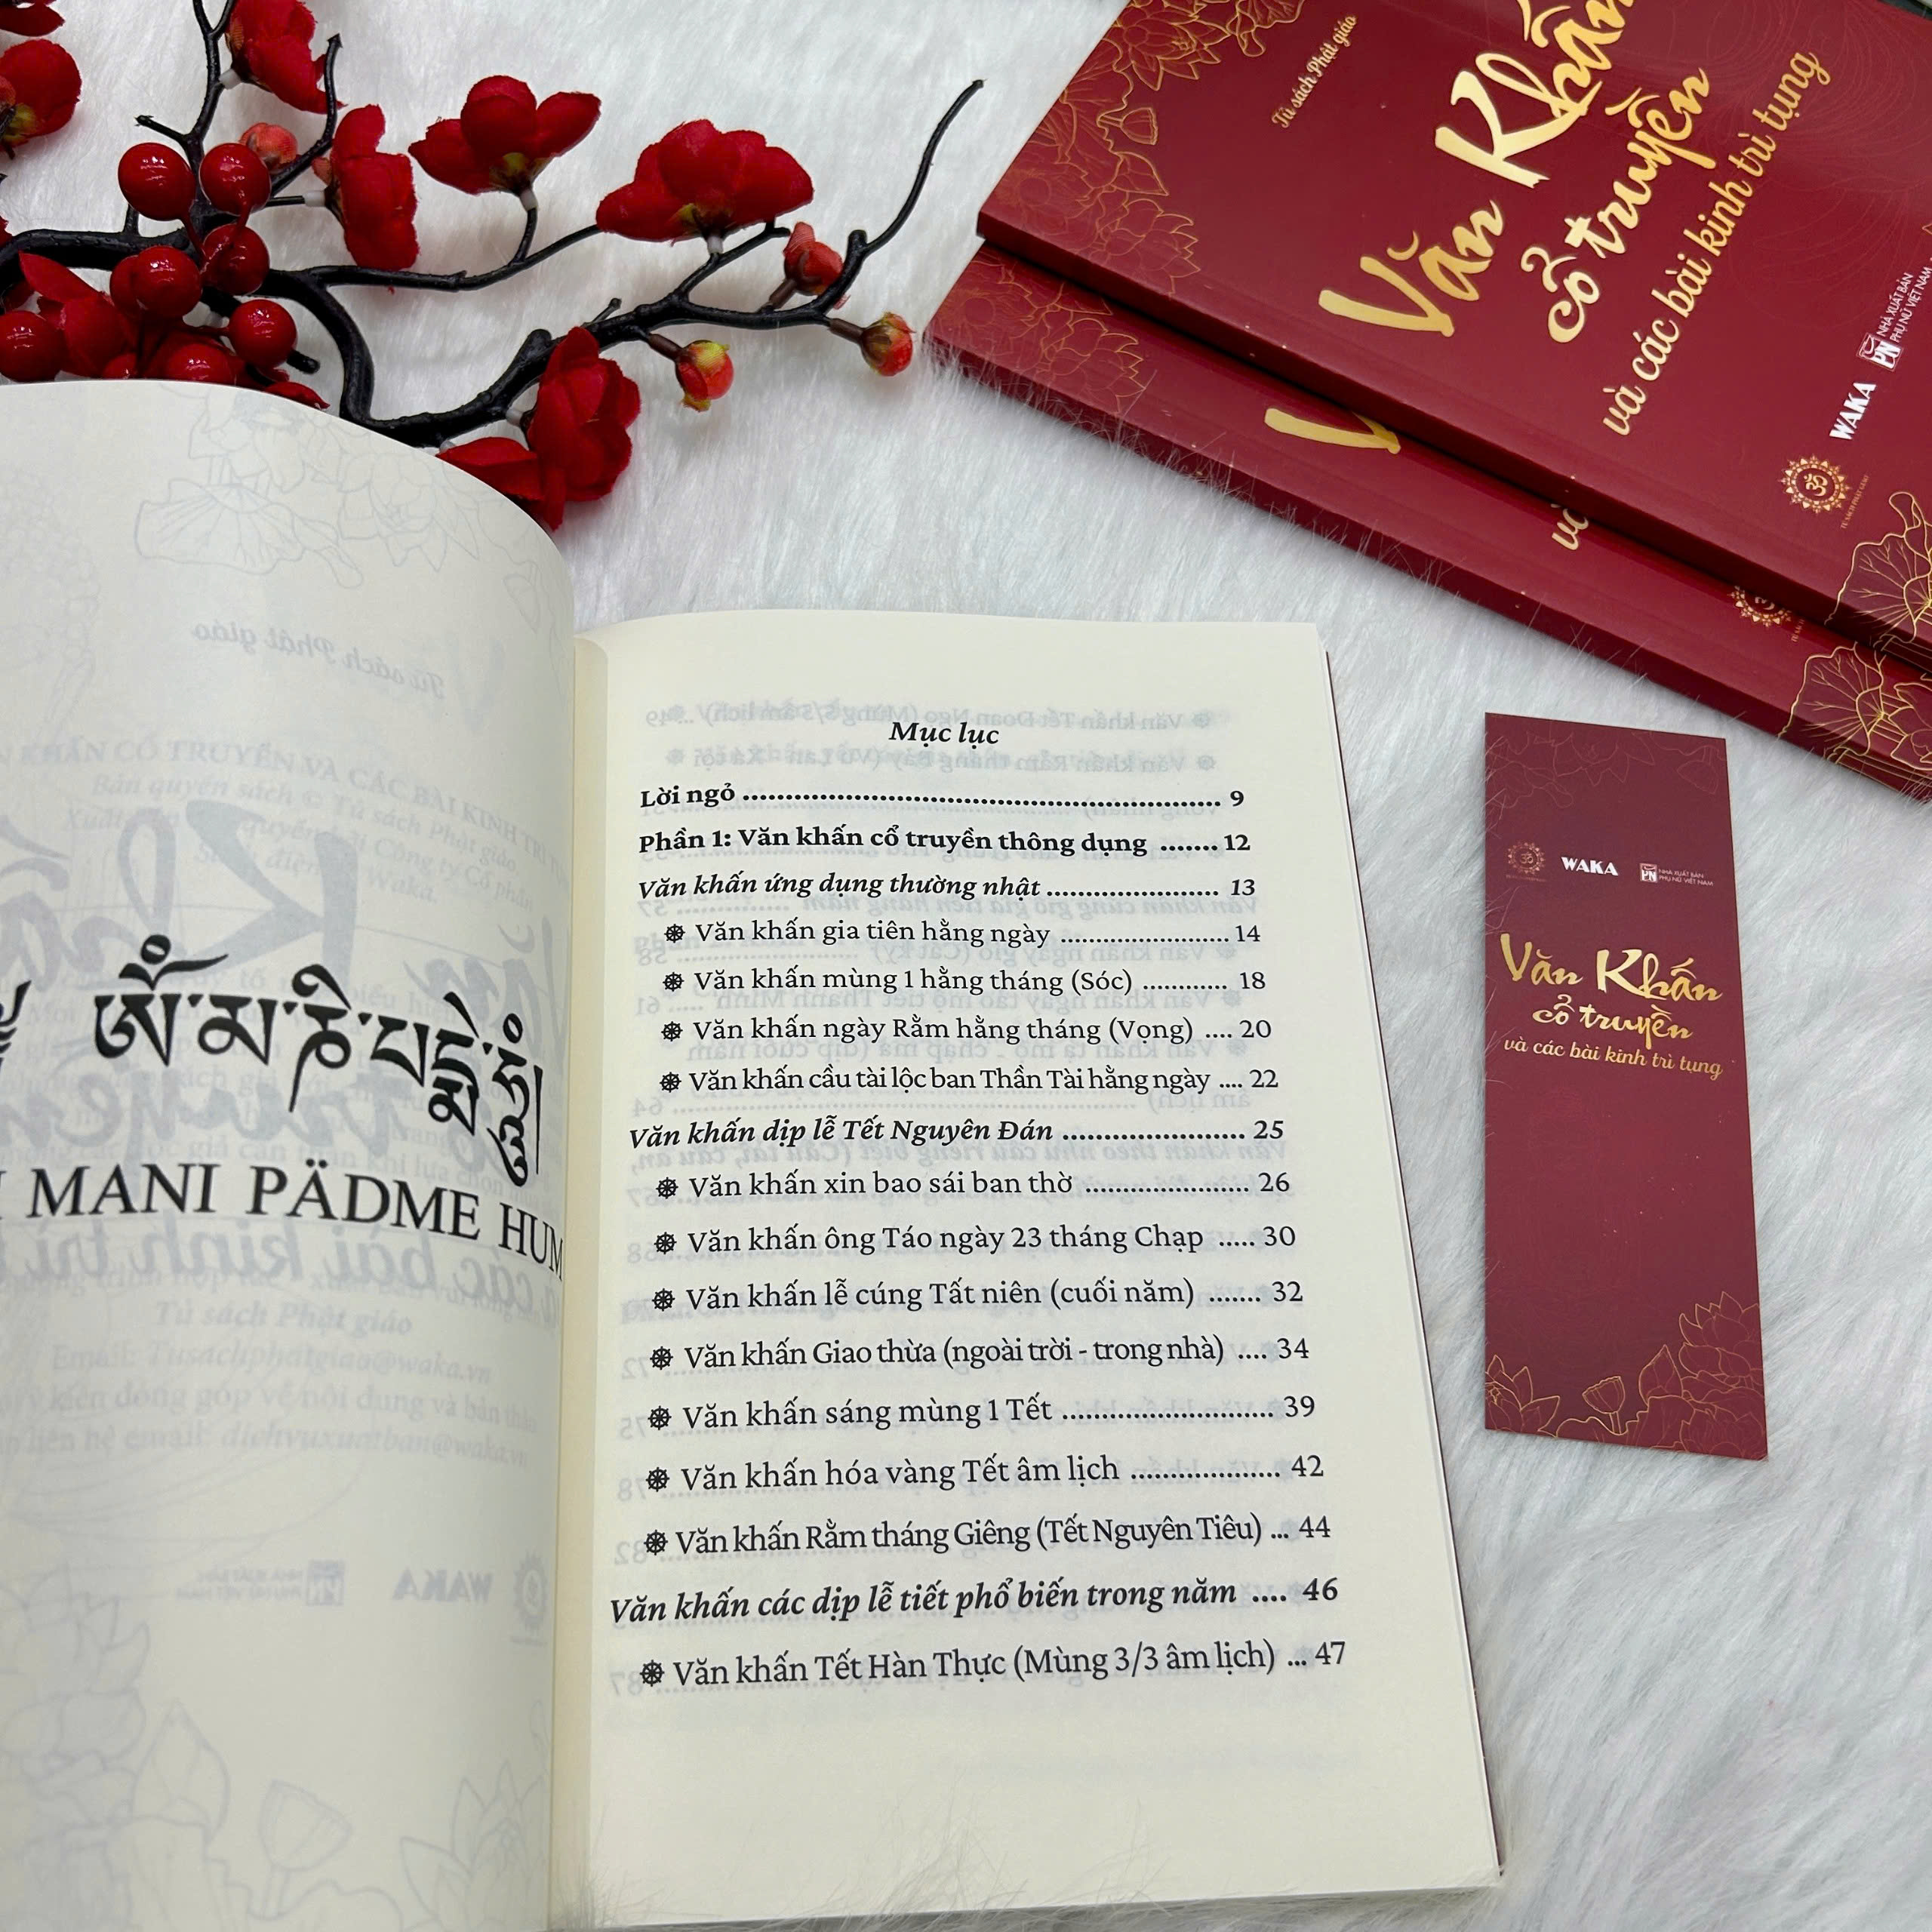 Tủ sách Phật giáo
Văn Khấn
cổ truyền
và các bài kinh trì tụng
WAKA
PN NHÀ XUẤT BẢN
PHỤ NỮ VIỆT NAM
TỦ SÁCH PHẬT GIÁO
V
và
MANI PÄDME HUM
Mục lục
Lời ngỏ ........ 9
Phần 1: Văn khấn cổ truyền thông dụng ....... 12
Văn khấn ứng dụng thường nhật ........ 13
Văn khấn gia tiên hằng ngày ........ 14
Văn khấn mùng 1 hằng tháng (Sóc) ............ 18
Văn khấn ngày Rằm hằng tháng (Vọng) .... 20
Văn khấn cầu tài lộc ban Thần Tài hằng ngày .... 22
Văn khấn dịp lễ Tết Nguyên Đán ........ 25
Văn khấn xin bao sái ban thờ ........ 26
Văn khấn ông Táo ngày 23 tháng Chạp ..... 30
Văn khấn lễ cúng Tất niên (cuối năm) ....... 32
Văn khấn Giao thừa (ngoài trời - trong nhà) .... 34
Văn khấn sáng mùng 1 Tết ........ 39
Văn khấn hóa vàng Tết âm lịch ........ 42
Văn khấn Rằm tháng Giêng (Tết Nguyên Tiêu) ... 44
Văn khấn các dịp lễ tiết phổ biến trong năm .... 46
Văn khấn Tết Hàn Thực (Mùng 3/3 âm lịch) ... 47
WAKA
PN NHÀ XUẤT BẢN
PHỤ NỮ VIỆT NAM
Văn Khấn
cổ truyền
và các bài kinh trì tụng